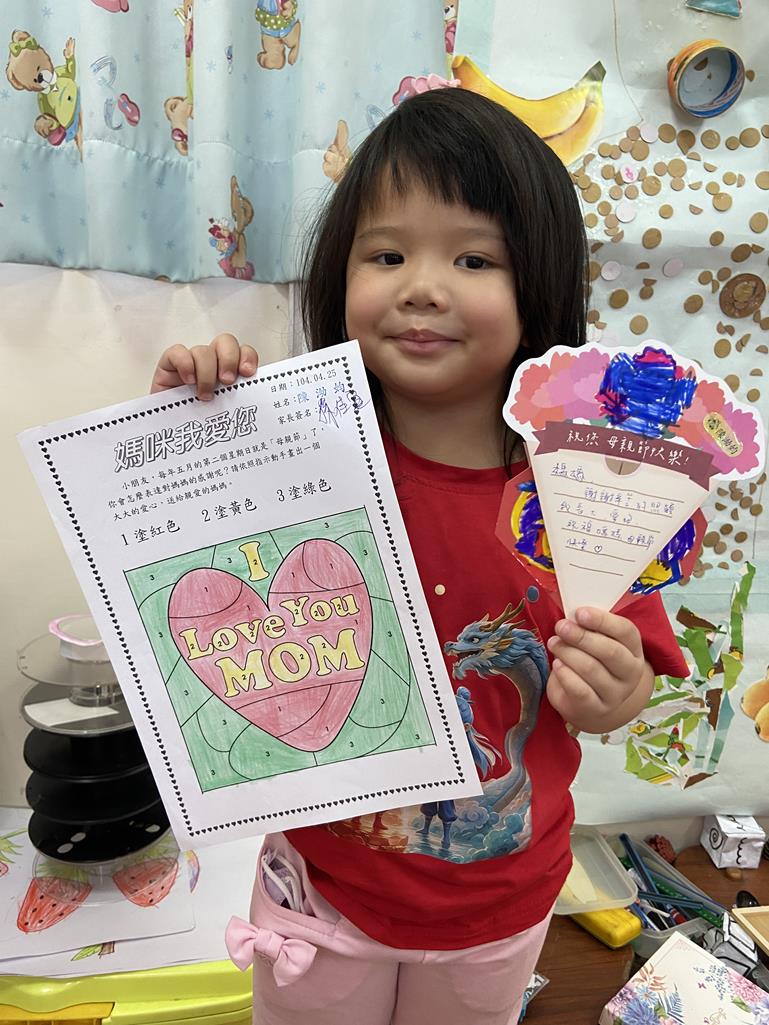 日期：104.04.25
姓名：陳
家長簽名：
媽咪我愛您
小朋友，每年五月的第二個星期日就是「母親節」了，
你會怎麼表達對媽媽的感謝呢？請依照指示動手畫出一個
大大的愛心，送給親愛的媽媽。
1 塗紅色 2 塗黃色 3 塗綠色
I
Love You
MOM
祝您 母親節快樂!
媽媽
謝謝辛苦的照顧
我長大 愛妳
祝福媽媽 母親節
快樂 ♡